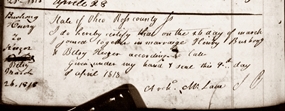 Aprile 28
Busbong
Henry
To
Kezer
Betsy
March
26. 1818
State of Ohio Ross county Ss
I do hereby certify that on the 26 day of march
joined together in marriage Henry Busbong
& Betsy Kezer according to Law
Given under my hand & seal this day
of april 1818
Arch. McLane J P